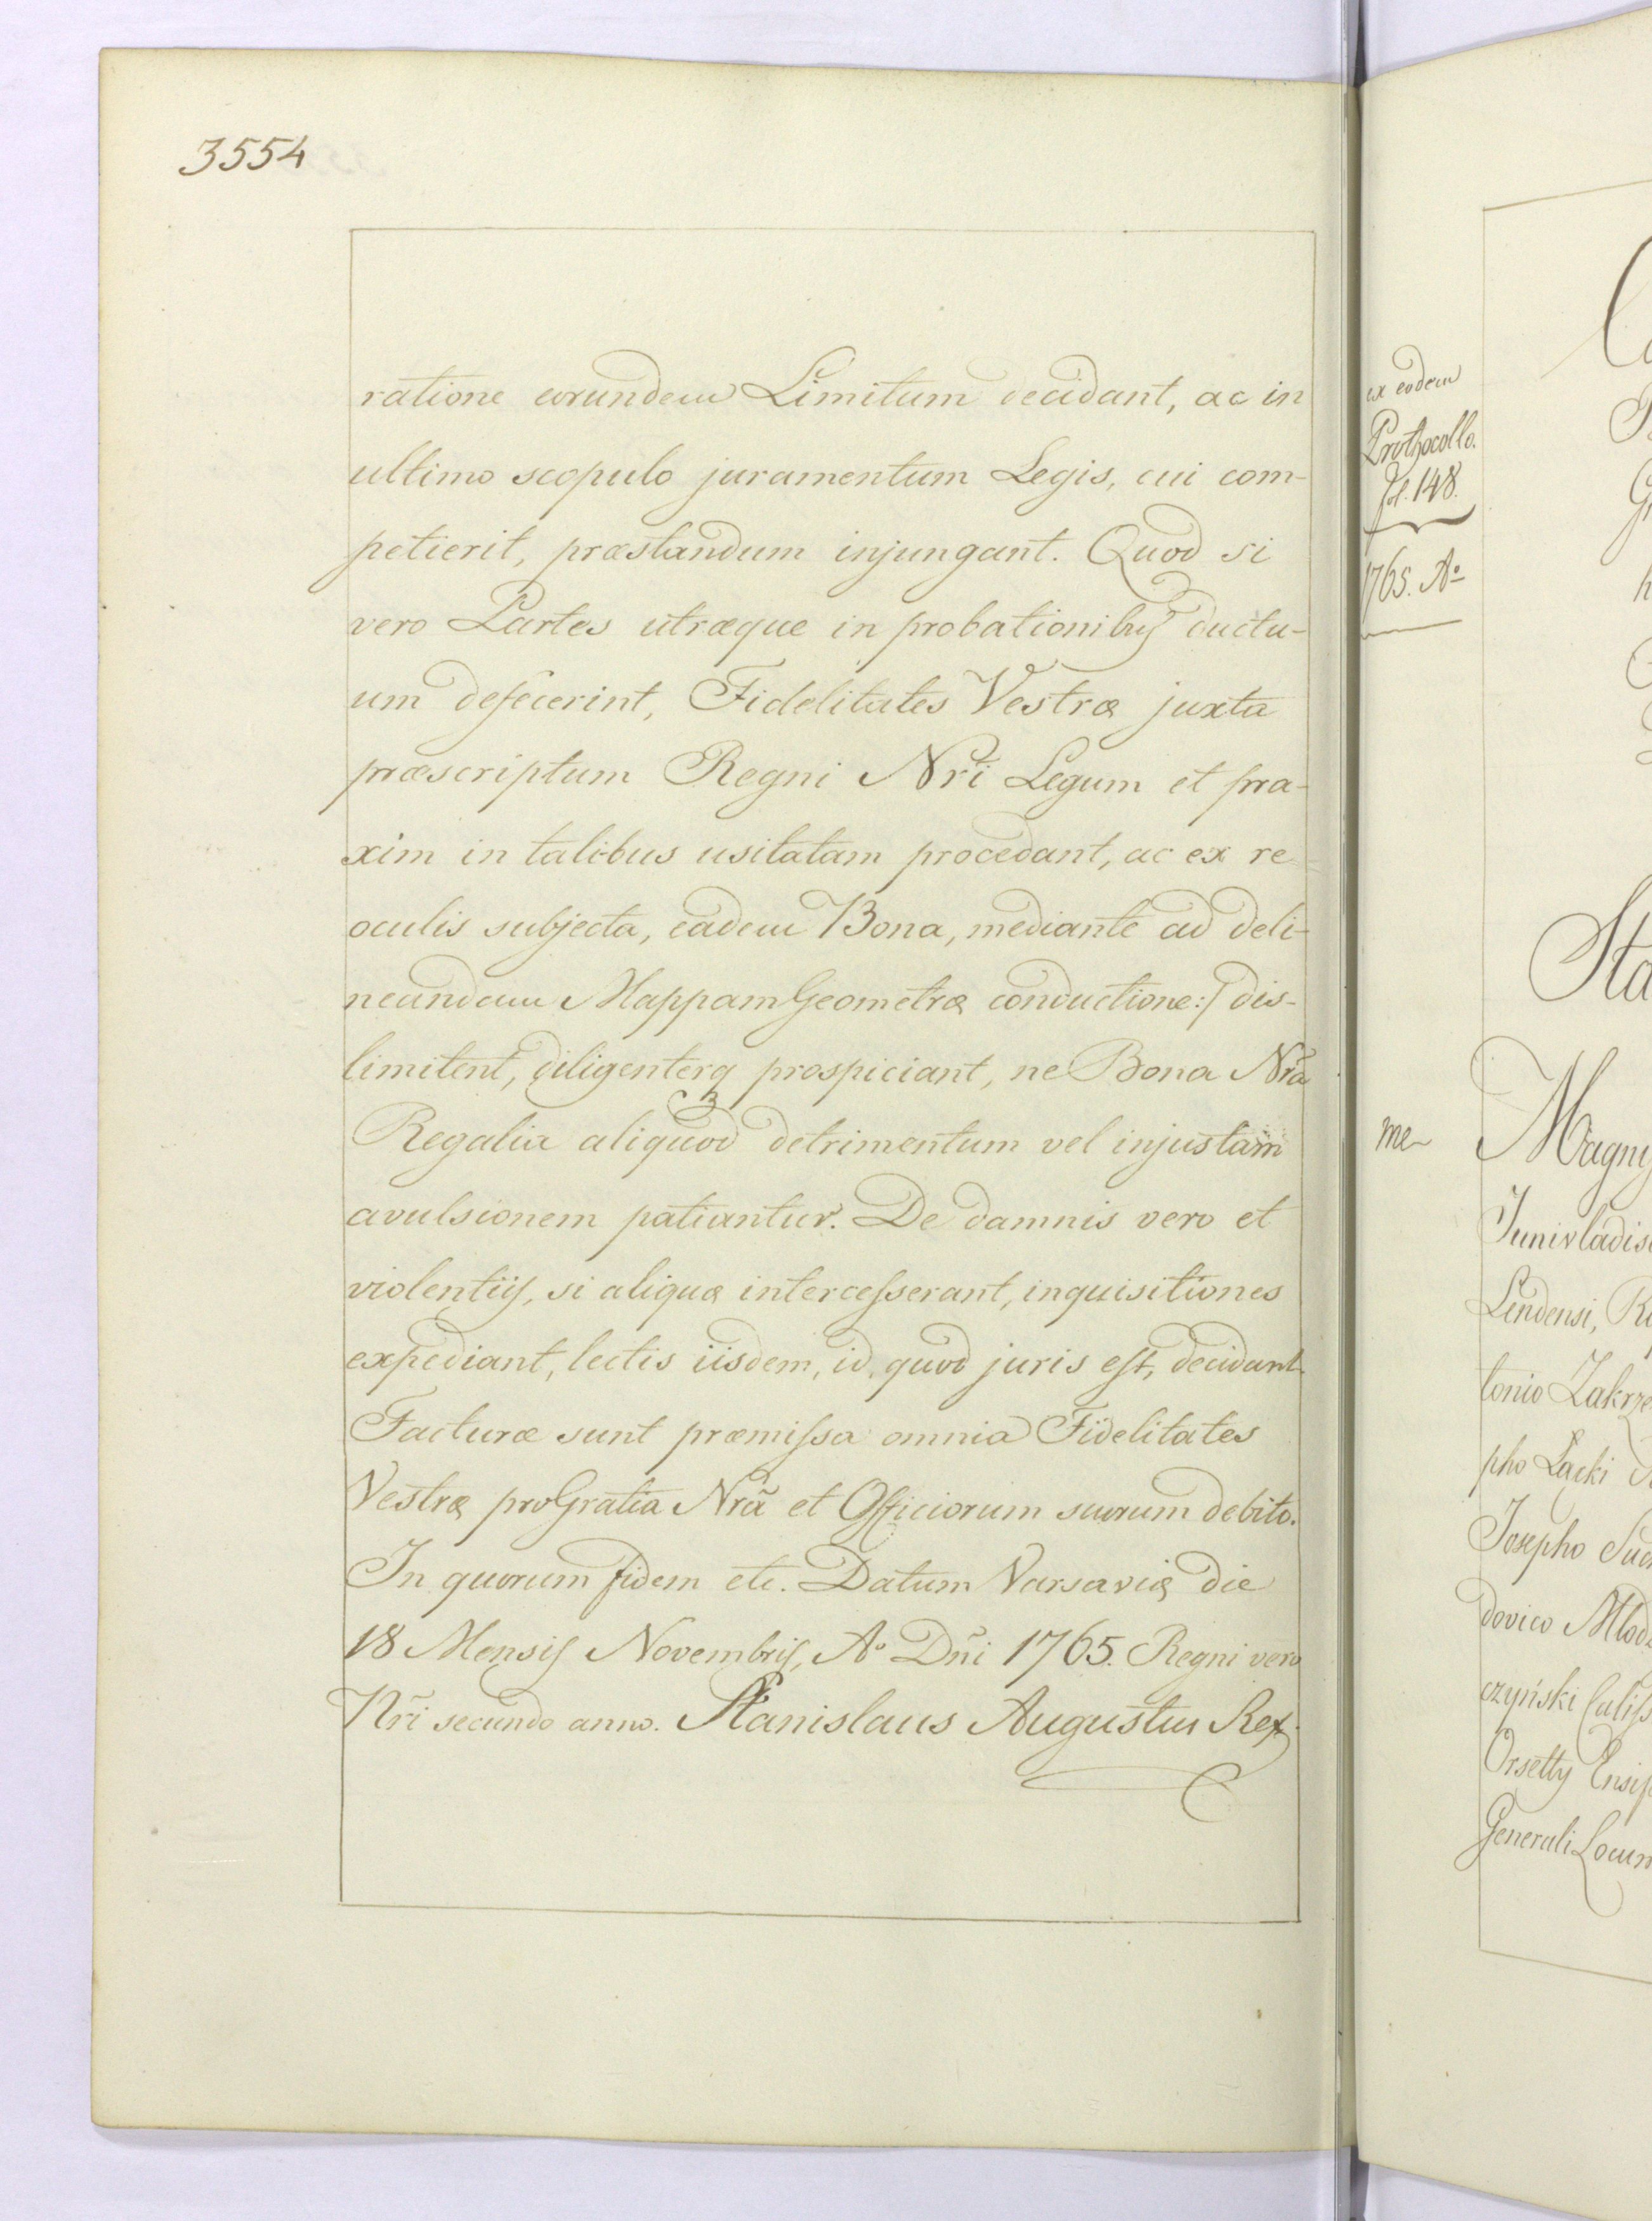 3554
ratione eorundem Limitum decidant, ac in
ultimo scopulo juramentum Legis, cui com-
petierit, præstandum injungant. Quod si
vero Partes utræque in probationibus ductu-
um defecerint, Fidelitates Vestræ juxta
præscriptum Regni Nri Legum et pra-
xim in talibus usitatam procedant, ac ex re
oculis subjecta, eadem Bona, mediante ad deli-
neandam Mappam Geometræ conductione :/ dis-
limitent, diligenterq prospiciant, ne Bona Nrã
Regalia aliquod detrimentum vel injustam
avulsionem patiantur. De damnis vero et
violentiis, si aliquæ intercesserant, inquisitiones
expediant, lectis iisdem, id, quod juris est, decidant.
Facturæ sunt præmissa omnia Fidelitates
Vestræ pro Gratia Nrã et Officiorum suorum debito.
In quorum fidem etc. Datum Varsaviæ die
18 Mensis Novembris, Aº Dñi 1765. Regni vero
Nr̃i secundo anno. Stanislaus Augustus Rex.
ex eodem
Prothocollo.
fol. 148.
1765. Aº
Sta
me
Magnis
Junivladis
Lendensi, R
tonio Zakrze
pho Łącki
Josepho Suc
dovico Młodz
czyński Caliss
Orsetty Ensif
Generali Locum